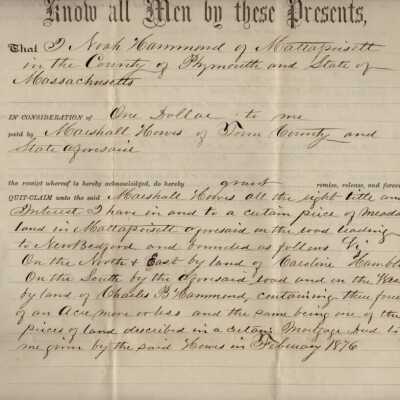 Know all Men by these Presents,
That I Noah Hammond of Mattapoisett
in the County of Plymouth and State of
Massachusetts
IN CONSIDERATION of One Dollar to me
paid by Marshall Howes of Town County and
State aforesaid
the receipt whereof is hereby acknowledged, do hereby grant remise, release, and forever
QUIT-CLAIM unto the said Marshall Howes all the right title and
Interest I have in and to a certain piece of Meadow
land in Mattapoisett aforesaid on the road leading
to New Bedford and bounded as follows Viz
On the North & East by land of Caroline Hambl
On the South by the aforesaid road and on the Wes
by land of Charles B Hammond, containing three four
of an Acre more or less and the same being one of the
pieces of land described in a certain Mortgage deed to
me given by the said Howes in February 1876